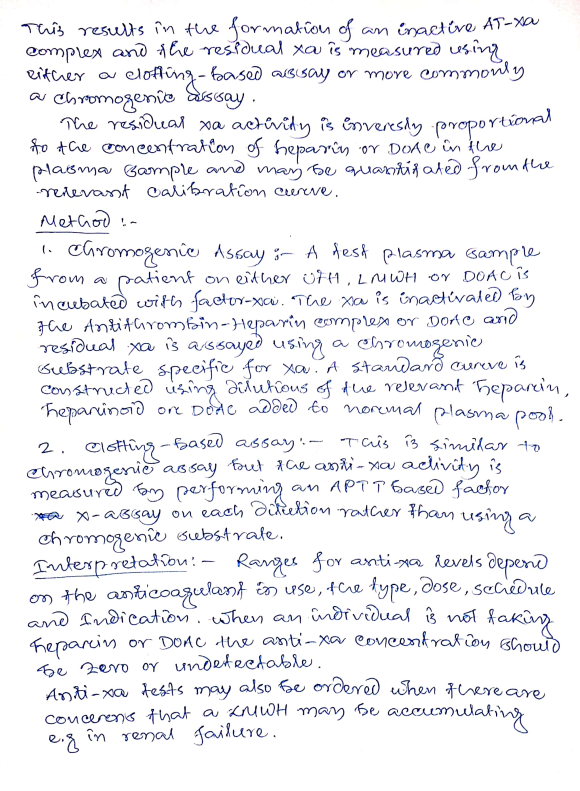 This results in the formation of an inactive AT-xa
complex and the residual xa is measured using
either a clotting-based assay or more commonly
a chromogenic assay.
The residual xa activity is inversly proportional
to the concentration of heparin or DOAC in the
plasma sample and may be quantified from the
relevant calibration curve.
Method :-
1. Chromogenic Assay :- A test plasma sample
from a patient on either UFH, LMWH or DOAC is
incubated with factor-xa. The xa is inactivated by
the Antithrombin-Heparin complex or DOAC and
residual xa is assayed using a chromogenic
substrate specific for xa. A standard curve is
constructed using dilutions of the relevant heparin,
heparinoid or DOAC added to normal plasma pool.
2. Clotting-based assay :- This is similar to
chromogenic assay but the anti-xa activity is
measured by performing an APTT based factor
x-assay on each dilution rather than using a
chromogenic substrate.
Interpretation :- Ranges for anti-xa levels depend
on the anticoagulant in use, the type, dose, schedule
and Indication. When an individual is not taking
heparin or DOAC the anti-xa concentration should
be zero or undetectable.
Anti-xa tests may also be ordered when there are
concerns that a LMWH may be accumulating
e.g in renal failure.